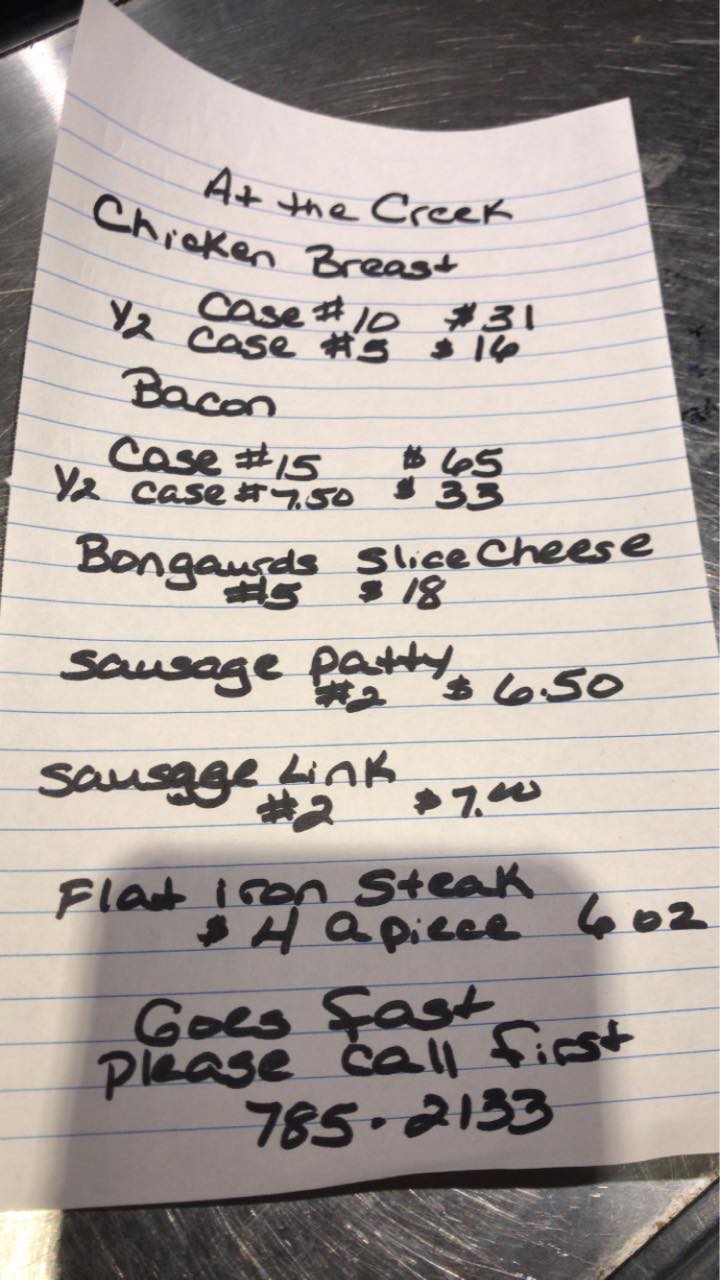 At the Creek
Chicken Breast
Case #10 $31
1/2 Case #5 $16
Bacon
Case #15 $65
1/2 case #7.50 $33
Bongaurds Slice Cheese
#5 $18
Sausage Patty
#2 $6.50
Sausage Link
#2 $7.00
Flat iron Steak
$4 a piece 6 oz
Goes fast
please call first
785.2133